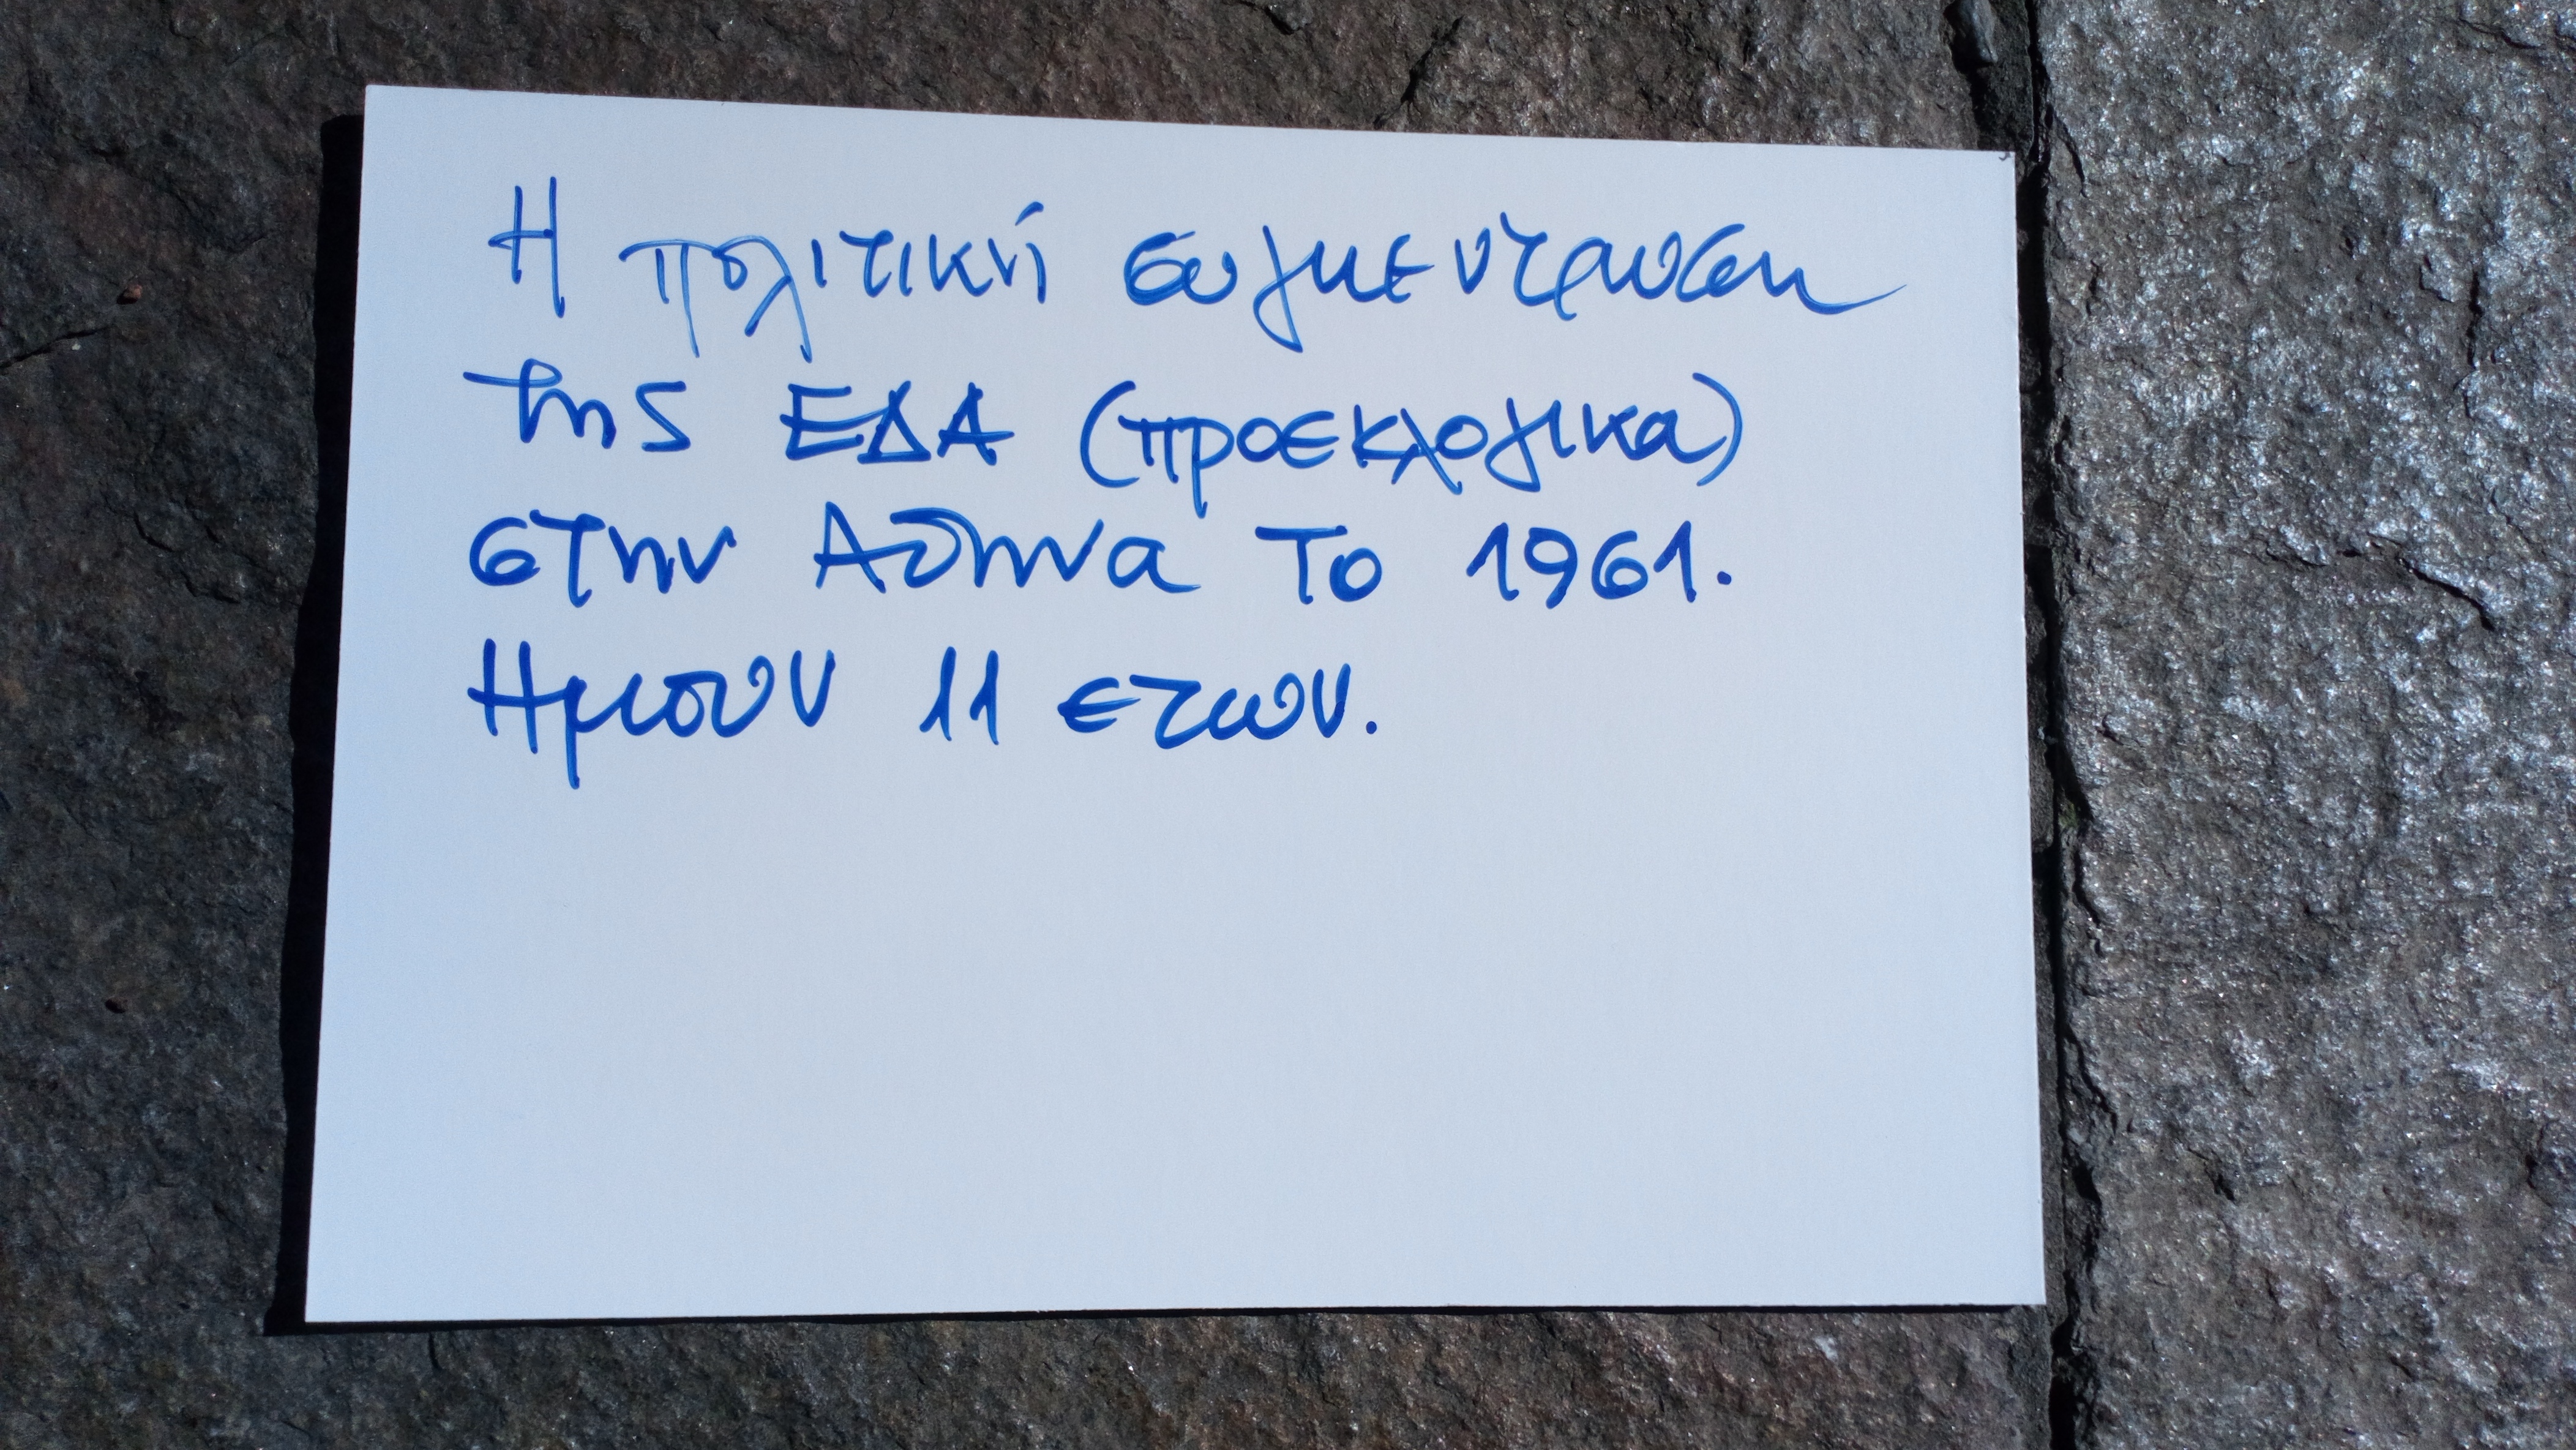 Η πολιτική συγκεντρωση
της ΕΔΑ (προεκλογικα)
στην Αθηνα το 1961.
Ημουν 11 ετων.